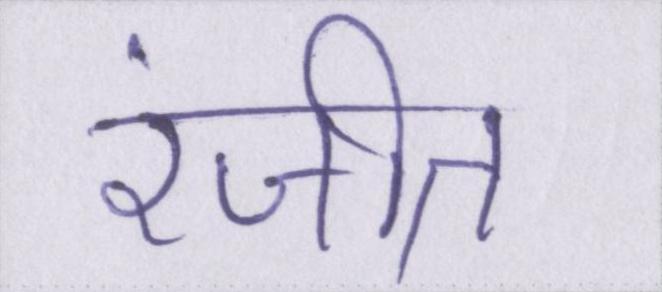 रंजीत